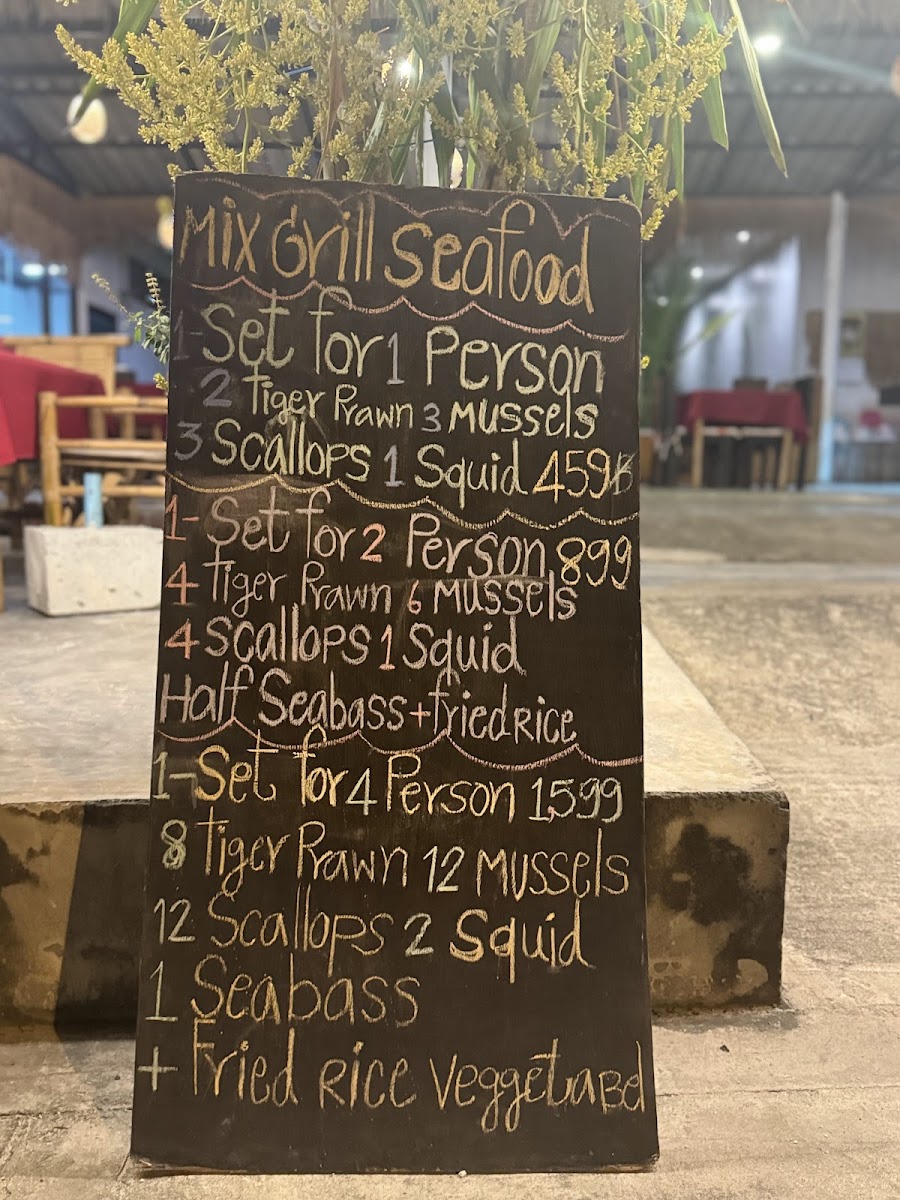 Mix Grill Seafood
1-Set for 1 Person
2 Tiger Prawn 3 Mussels
3 Scallops 1 Squid 459฿
1-Set for 2 Person 899
4 Tiger Prawn 6 Mussels
4 Scallops 1 Squid
Half Seabass + fried Rice
1-Set for 4 Person 1,599
8 Tiger Prawn 12 Mussels
12 Scallops 2 Squid
1 Seabass
+ Fried Rice Veggetabel